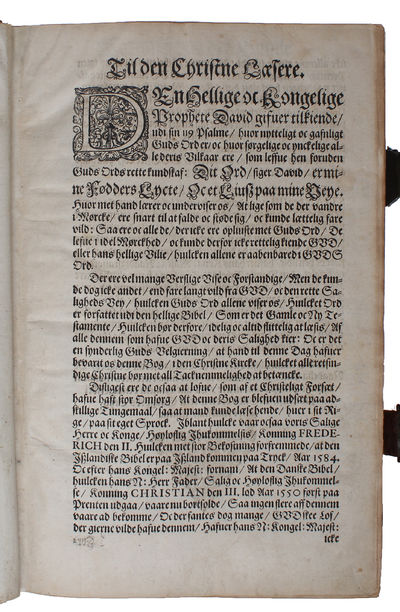 Til den Christne Læsere.
DEn Hellige oc Kongelige
Prophete David gifuer tilkiende/
udi sin 119 Psalme/ huor nytteligt oc gafnligt
Guds Ord er/ oc huor sørgelige oc ynckelige al-
le deris Vilkaar ere/ som leffue hen foruden
Guds Ords rette kundskaf: Dit Ord/ siger David/ er mi-
ne Fødders Lycte/ Oc et Liuß paa mine Veye.
Huor met hand lærer oc underviser os/ At lige som de der vandre
i Mørcke/ ere snart til at falde oc støde sig/ oc kunde lættelig fare
vild: Saa ere oc alle de/ der icke ere opliuste met Guds Ord/ De
lefue i idel Mørckhed/ oc kunde derfor icke rettelig kiende GVD/
eller hans hellige Vilie/ huilcken allene er aabenbared i GVDS
Ord.
Der ere vel mange Verslige Vise oc Forstandige/ Men de kun-
de dog icke andet/ end fare langt vild fra GVD/ oc den rette Sa-
ligheds Vey/ huilcken Guds Ord allene viser os/ Huilcket Ord
er forfattet udi den hellige Bibel/ Som er det Gamle oc Ny Te-
stamente/ Huilcken bør derfore/ idelig oc altid flittelig at læsis/ Af
alle dennem som hafue GVD oc deris Salighed kier: Oc er det
en synderlig Guds Velgierning/ at hand til denne Dag hafuer
bevarit os denne Bog/ i den Christne Kircke/ huilcket alle retsin-
dige Christne bør met all Tacknemmelighed at betencke.
Disligest ere de ocsaa at lofue/ som af et Christeligt Forsæt/
hafue haft stor Omsorg/ At denne Bog er blefuen udsæt paa ad-
skillige Tungemaal/ saa at mand kunde læse hende/ huer i sit Ri-
ge/ paa sit eget Sprock. Iblant huilcke vaar ocsaa voris Salige
Herre oc Konge/ Høyloflig Ihukommelsis/ Konning FREDE-
RICH den II, Huilcken met stor Bekostning forfremmede/ at den
Ißlandske Bibel er paa Ißland kommen paa Tryck/ Aar 1584.
Oc efter hans Kongel: Majest: fornam/ At den Danske Bibel/
huilcken hans N: Herr Fader/ Salig oc Høyloflig Ihukommel-
se/ Konning CHRISTIAN den III, lod Aar 1550 først paa
Prenten udgaa/ vaare nu bortsolde/ Saa ingen flere aff dennem
vaare ad bekomme/ Oc der fantes dog mange/ GVD skee Lof/
der gierne vilde hafue dennem/ Hafuer hans N: Kongel: Majest:
icke